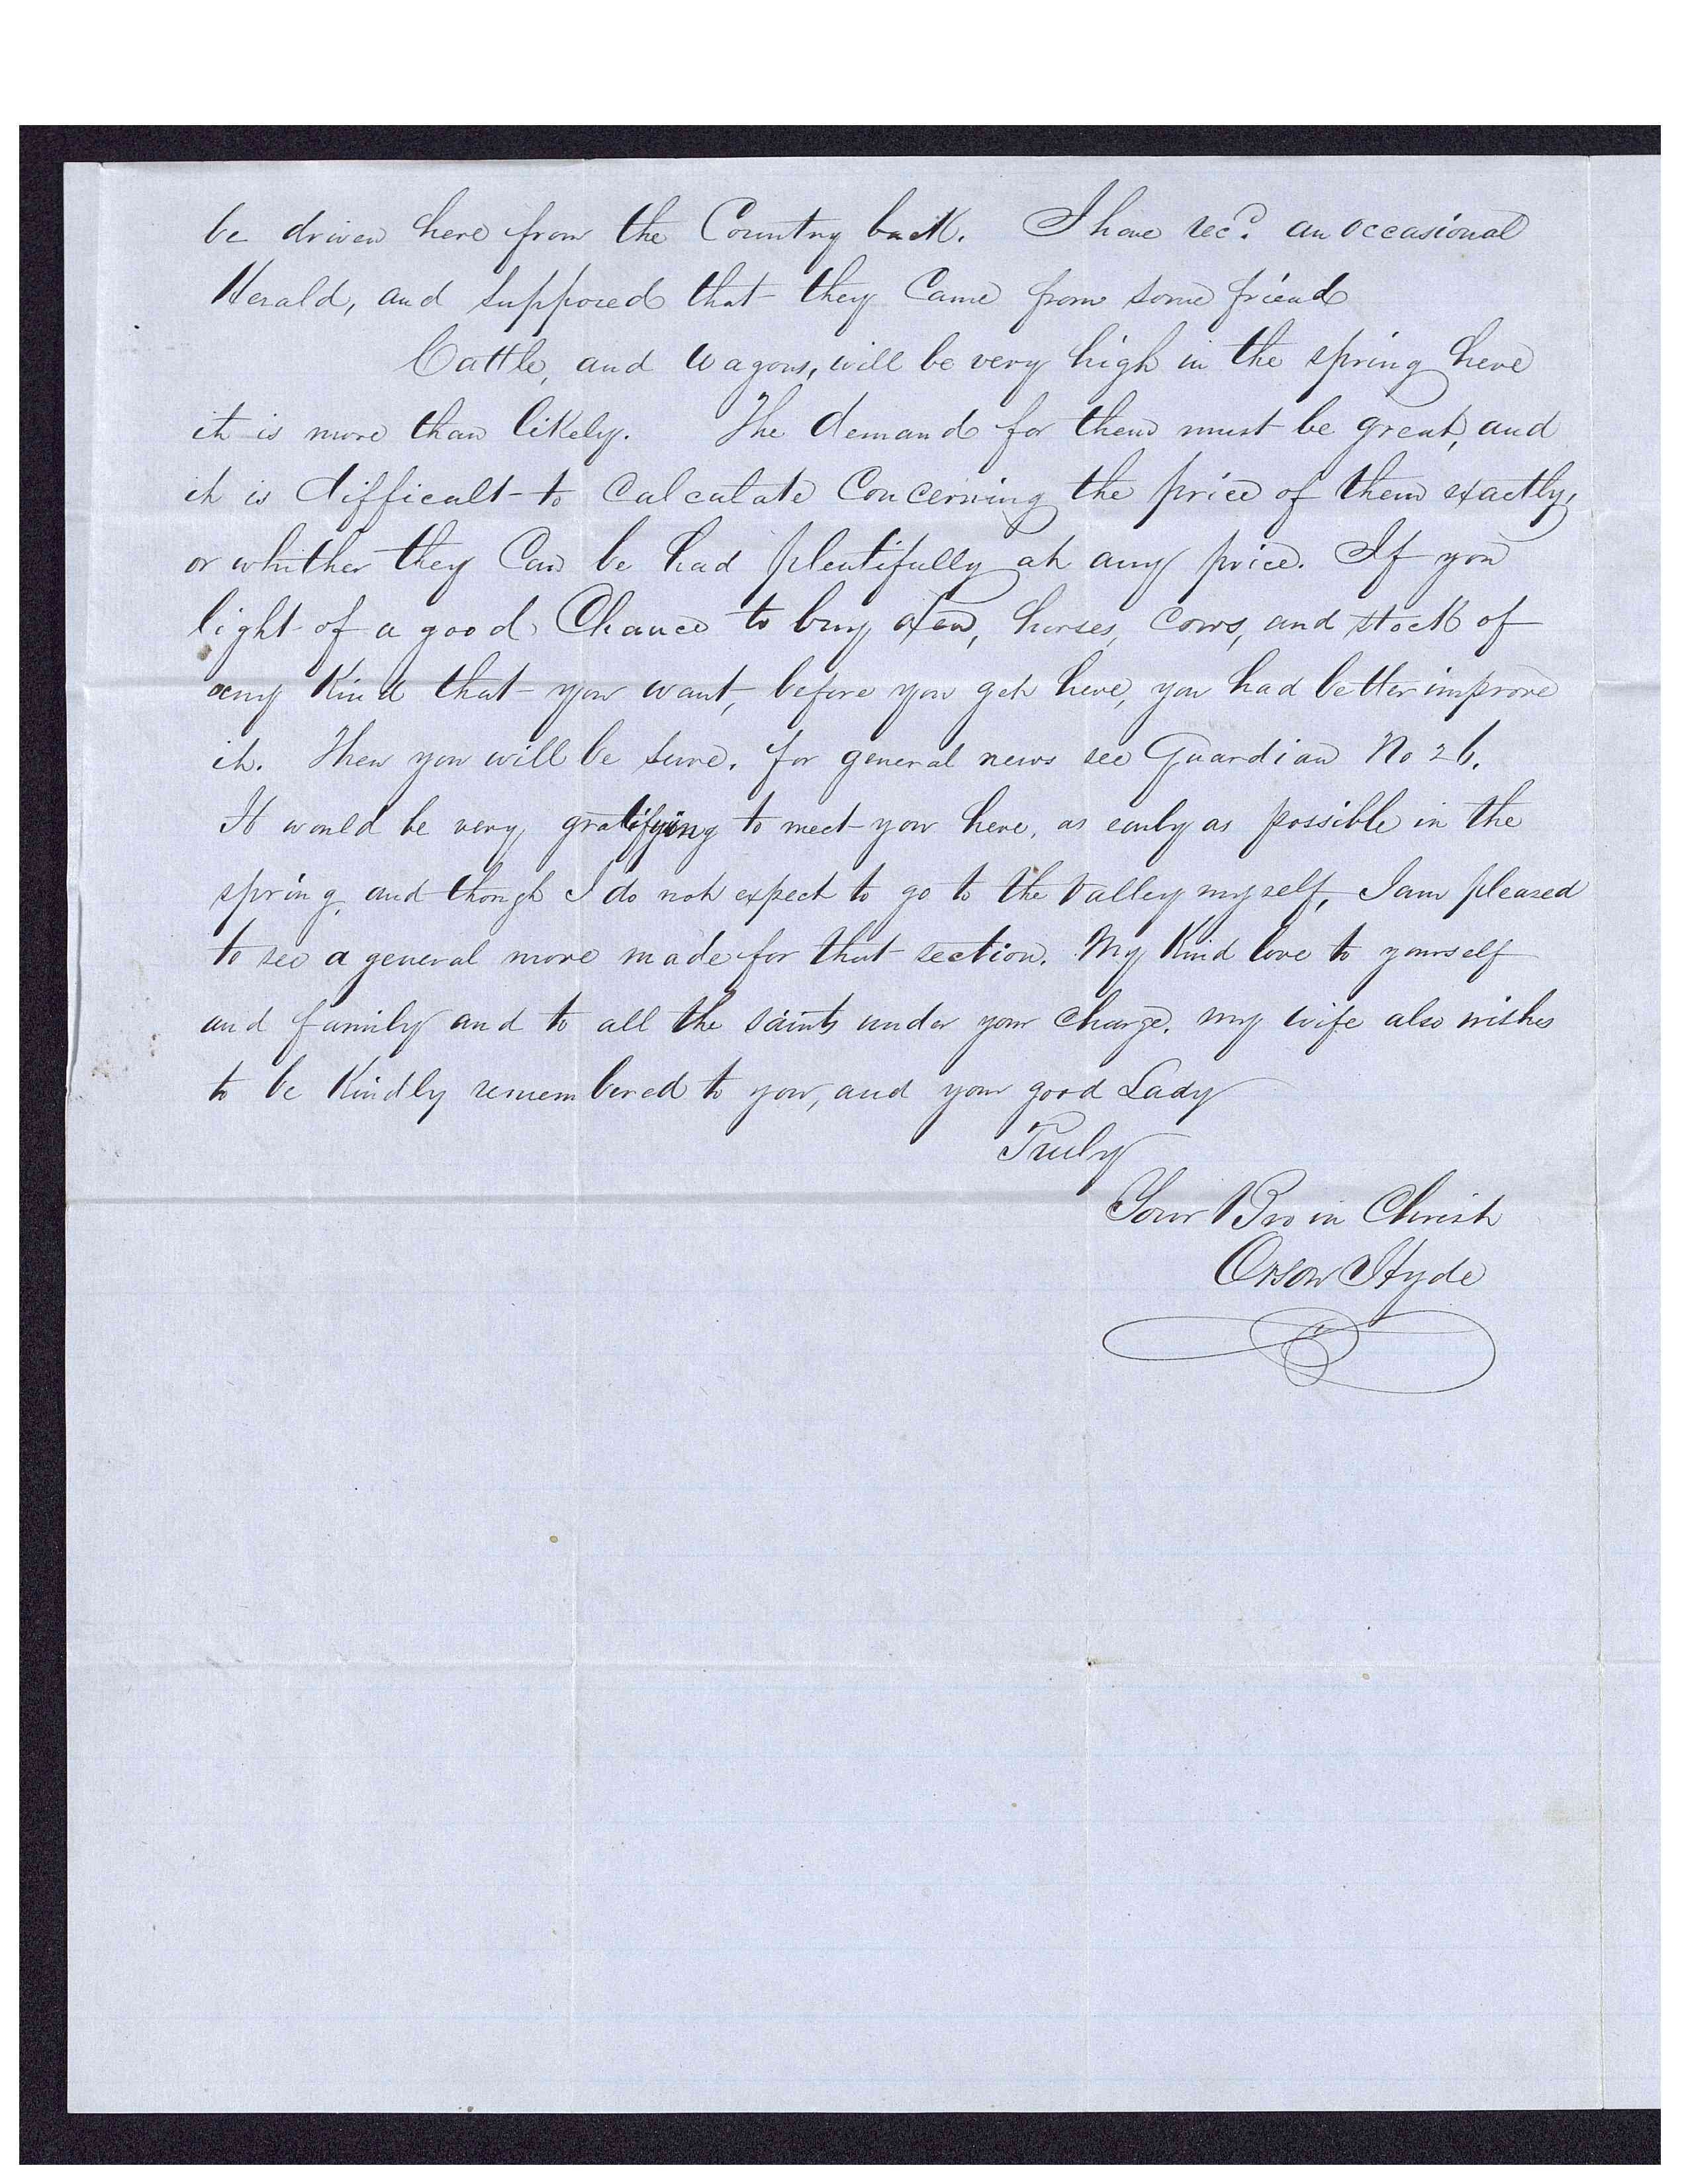 be driven here from the Country back. I have recd. an occasional
Herald, and supposed that they Came from some friend
Cattle, and wagons, will be very high in the spring here
it is more than likely. The demand for them must be great, and
it is difficult to Calculate Concerning the price of them exactly,
or whither they Can be had plentifully at any price. If you
light of a good Chance to buy oxen, horses, Cows, and stock of
any Kind that you want, before you get here, you had better improve
it. Then you will be sure. for general news see Guardian No 26.
It would be very gratifying to meet you here, as early as possible in the
spring, and though I do not expect to go to the Valley myself, I am pleased
to see a general move made for that section. My Kind love to yourself
and family and to all the saints under your Charge. my wife also wishes
to be Kindly remembered to you, and your good Lady
Truly
Your Bro in Christ
Orson Hyde